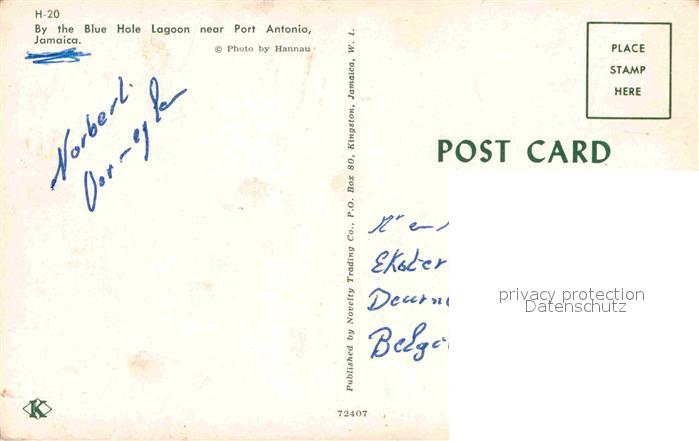 H-20
By the Blue Hole Lagoon near Port Antonio,
Jamaica.
© Photo by Hannau
Norbert
Published by Novelty Trading Co., P.O. Box 80, Kingston, Jamaica, W. I.
PLACE
STAMP
HERE
POST CARD
privacy protection
Datenschutz
K
72407